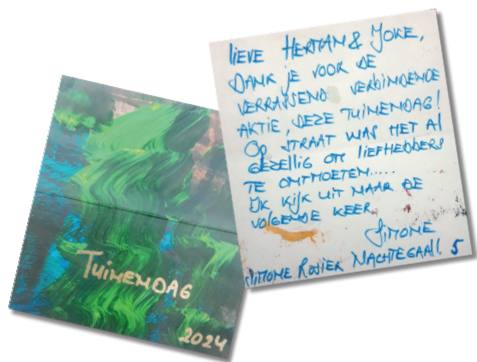 lieve HERMAN & JOKE,
DANK je VOOR DE
VERRASSEND VERBINDENDE
AKTIE, DEZE TUINENDAG!
OP STRAAT WAS HET AL
GEZELLIG OM LIEFHEBBERS
TE ONTMOETEN.....
IK KIJK UIT NAAR DE
VOLGENDE KEER.
SIMONE
SIMONE ROSIER NACHTEGAAL. 5
TUINENDAG
2024